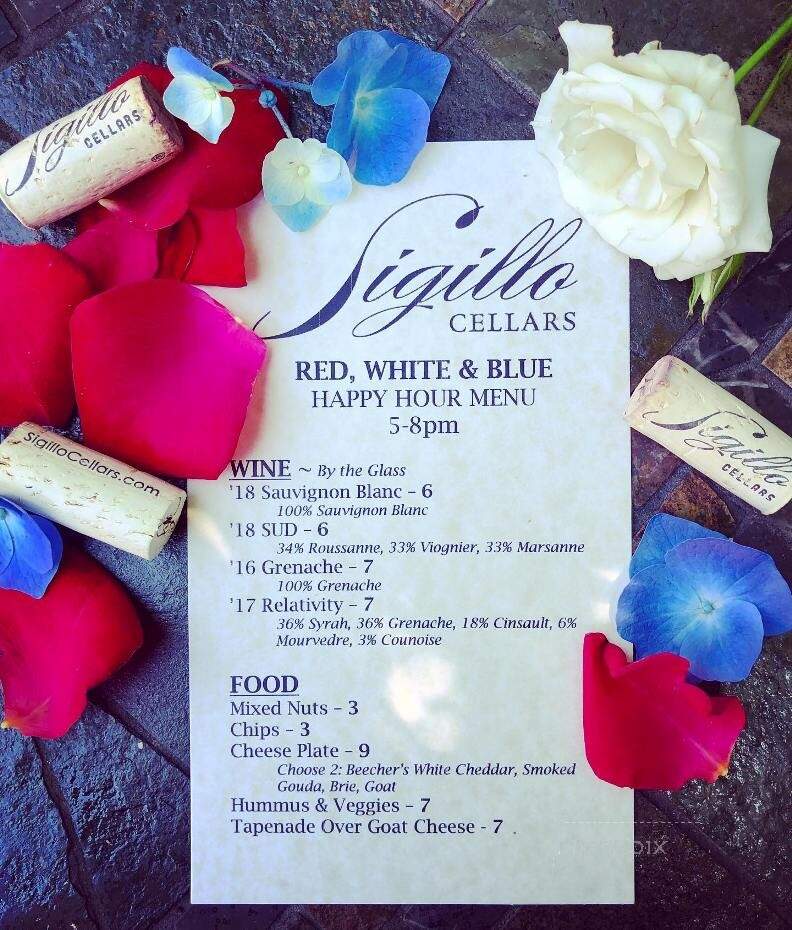 Sigillo
CELLARS
Sigillo
CELLARS
RED, WHITE & BLUE
HAPPY HOUR MENU
5-8pm
Sigillo
CELLARS
SigilloCellars.com
WINE ~ By the Glass
'18 Sauvignon Blanc – 6
100% Sauvignon Blanc
'18 SUD – 6
34% Roussanne, 33% Viognier, 33% Marsanne
'16 Grenache – 7
100% Grenache
'17 Relativity – 7
36% Syrah, 36% Grenache, 18% Cinsault, 6%
Mourvedre, 3% Counoise
FOOD
Mixed Nuts – 3
Chips – 3
Cheese Plate – 9
Choose 2: Beecher's White Cheddar, Smoked
Gouda, Brie, Goat
Hummus & Veggies – 7
Tapenade Over Goat Cheese - 7